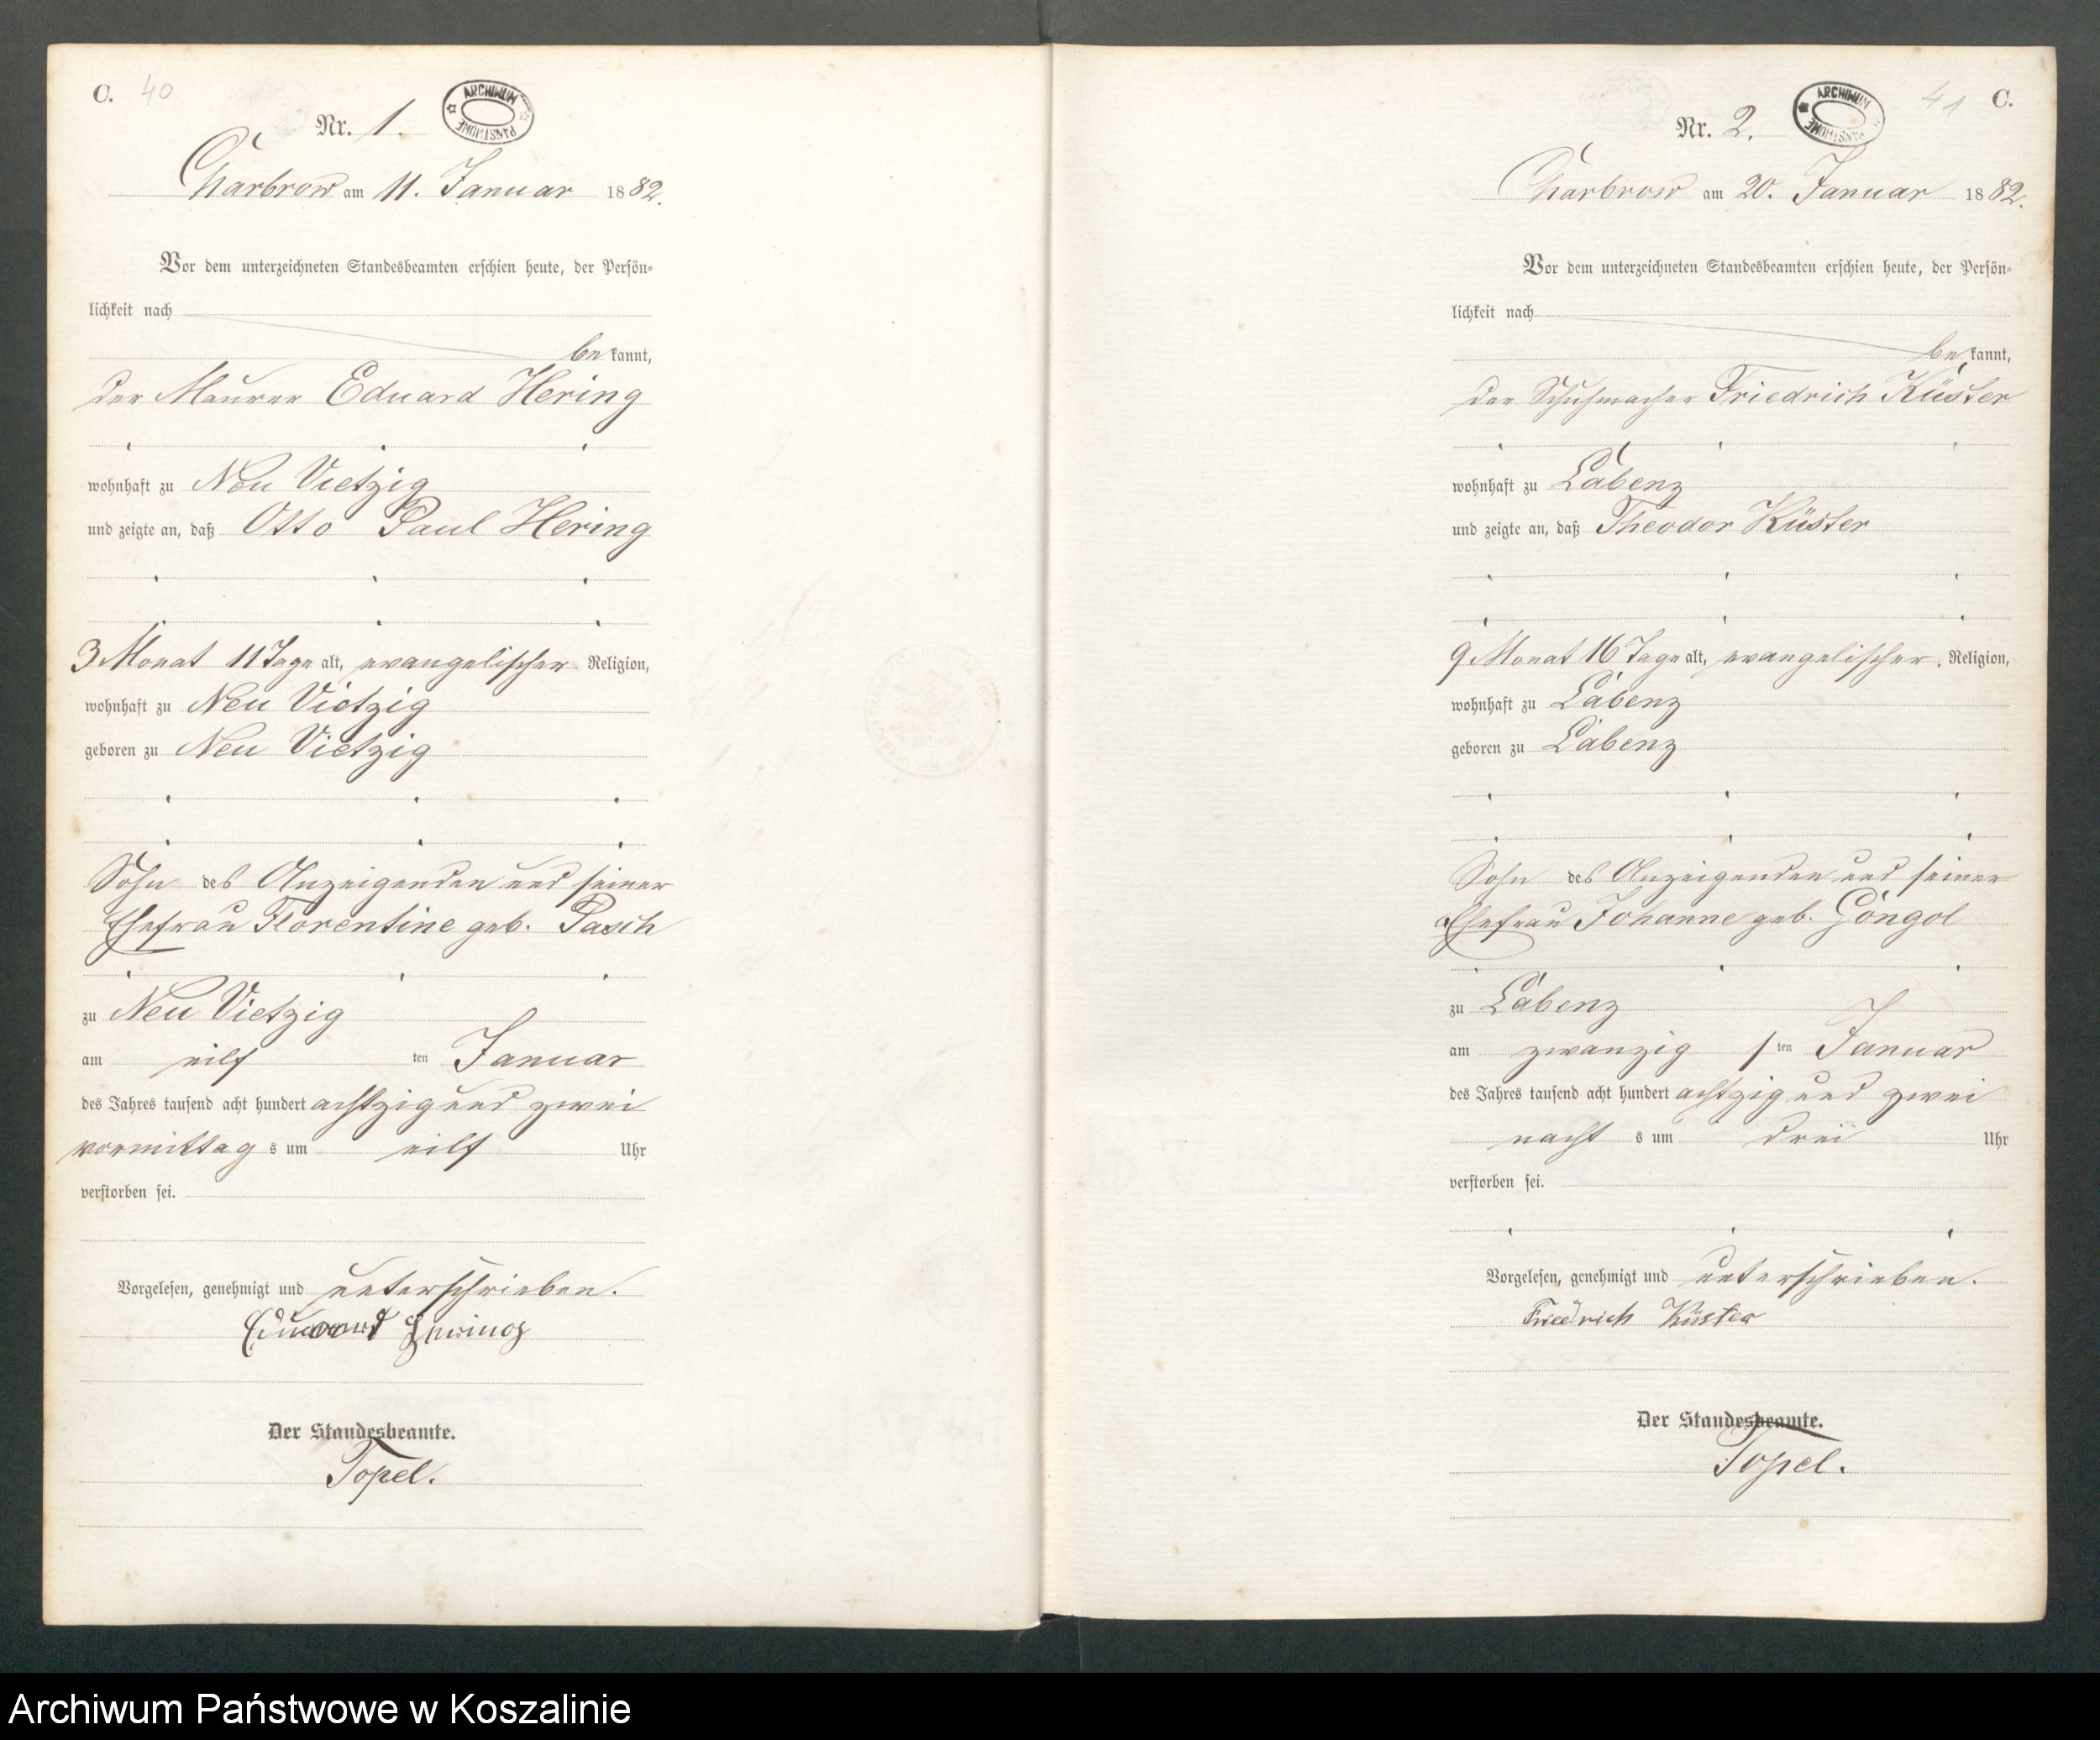 C. 40
Nr. 1.
ARCHIWUM PAŃSTWOWE
Charbrow am 11. Januar 1882.
Vor dem unterzeichneten Standesbeamten erschien heute, der Persön-
lichkeit nach
be kannt,
der Maurer Eduard Hering
wohnhaft zu Neu Vietzig
und zeigte an, daß Otto Paul Hering
3 Monat 11 Tage alt, evangelischer Religion,
wohnhaft zu Neu Vietzig
geboren zu Neu Vietzig
Sohn des Anzeigenden und seiner
Ehefrau Florentine geb. Pasch
zu Neu Vietzig
am eilf ten Januar
des Jahres tausend acht hundert achtzig und zwei
vormittag s um eilf Uhr
verstorben sei.
Vorgelesen, genehmigt und unterschrieben.
Eduard Hering
Der Standesbeamte.
Topel.
41 C.
Nr. 2.
ARCHIWUM PAŃSTWOWE
Charbrow am 20. Januar 1882.
Vor dem unterzeichneten Standesbeamten erschien heute, der Persön-
lichkeit nach
be kannt,
der Schuhmacher Friedrich Küster
wohnhaft zu Labenz
und zeigte an, daß Theodor Küster
9 Monat 16 Tage alt, evangelischer Religion,
wohnhaft zu Labenz
geboren zu Labenz
Sohn des Anzeigenden und seiner
Ehefrau Johanne geb. Göngol
zu Labenz
am zwanzig sten Januar
des Jahres tausend acht hundert achtzig und zwei
nacht s um drei Uhr
verstorben sei.
Vorgelesen, genehmigt und unterschrieben.
Friedrich Küster
Der Standesbeamte.
Topel.
Archiwum Państwowe w Koszalinie